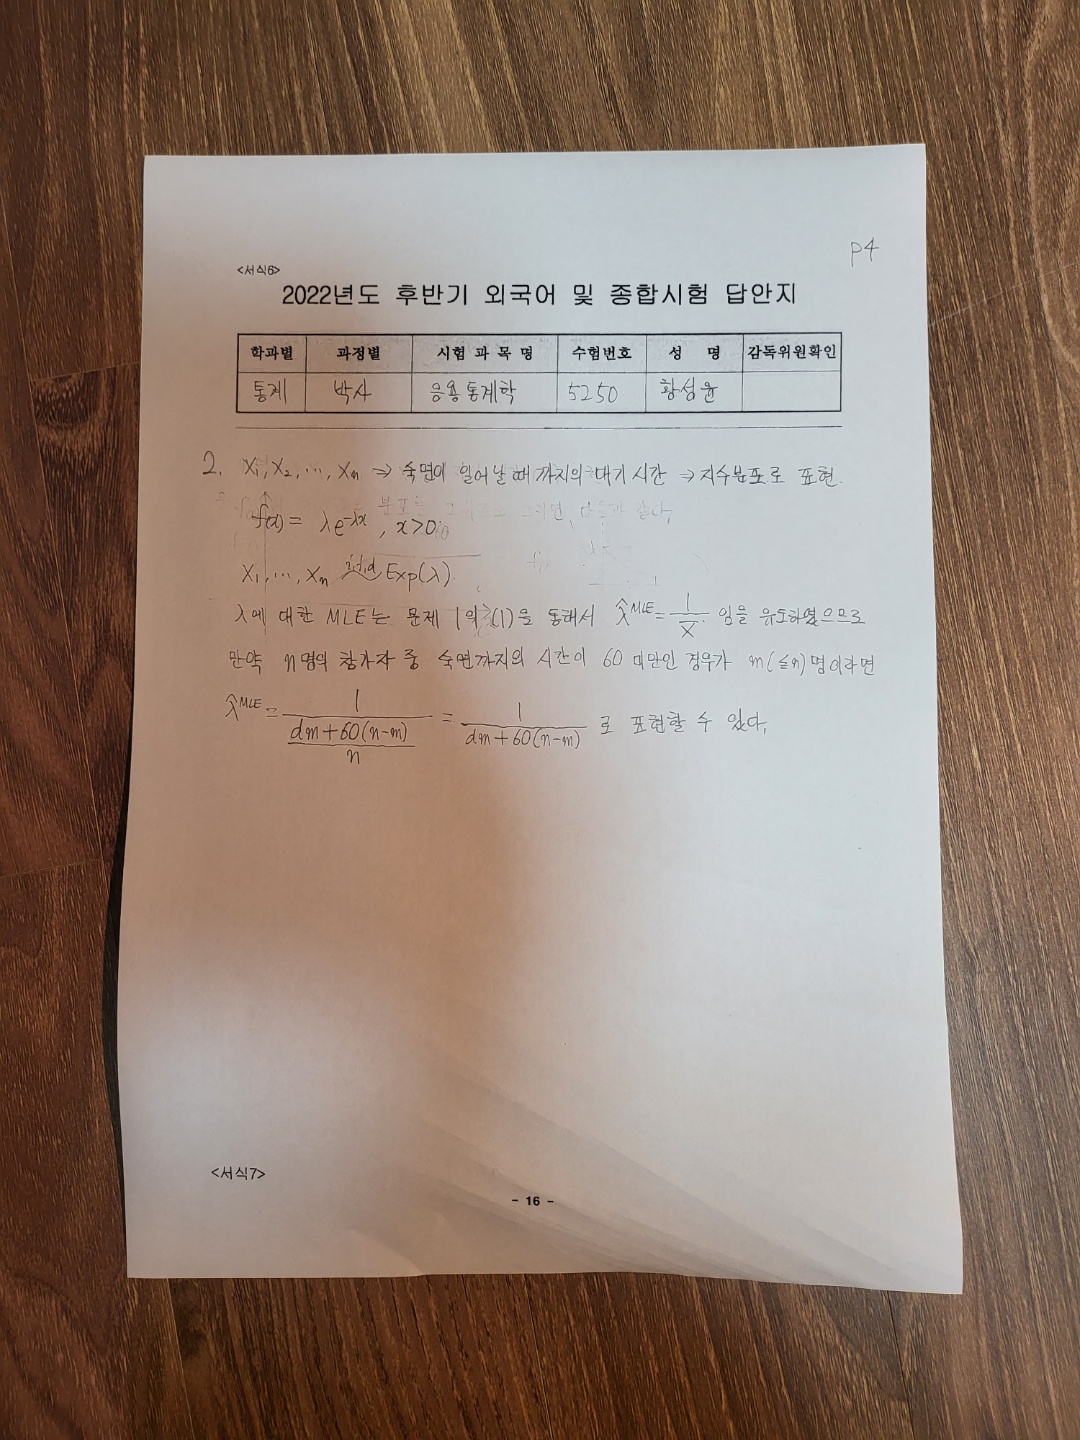 P4
<서식6>
2022년도 후반기 외국어 및 종합시험 답안지
학과별 과정별 시험 과 목 명 수험번호 성 명 감독위원확인
통계 박사 응용통계학 5250 황성윤
2. X₁, X₂, ..., Xₙ ⇒ 숙면이 일어날 때까지의 대기시간 → 지수분포로 표현.
f(x) = λe^-λx , x>0
X₁, ..., Xₙ iid Exp(λ)
λ에 대한 MLE는 문제 1의 (1)을 통해서 λ̂^MLE = 1/X̄ 임을 유도하였으므로
만약 n명의 참가자 중 숙면까지의 시간이 60 미만인 경우가 m(≤n)명이라면
λ̂^MLE = 1/((dm+60(n-m))/n) = 1/(dm+60(n-m)) 로 표현할 수 있다.
<서식7>
- 16 -